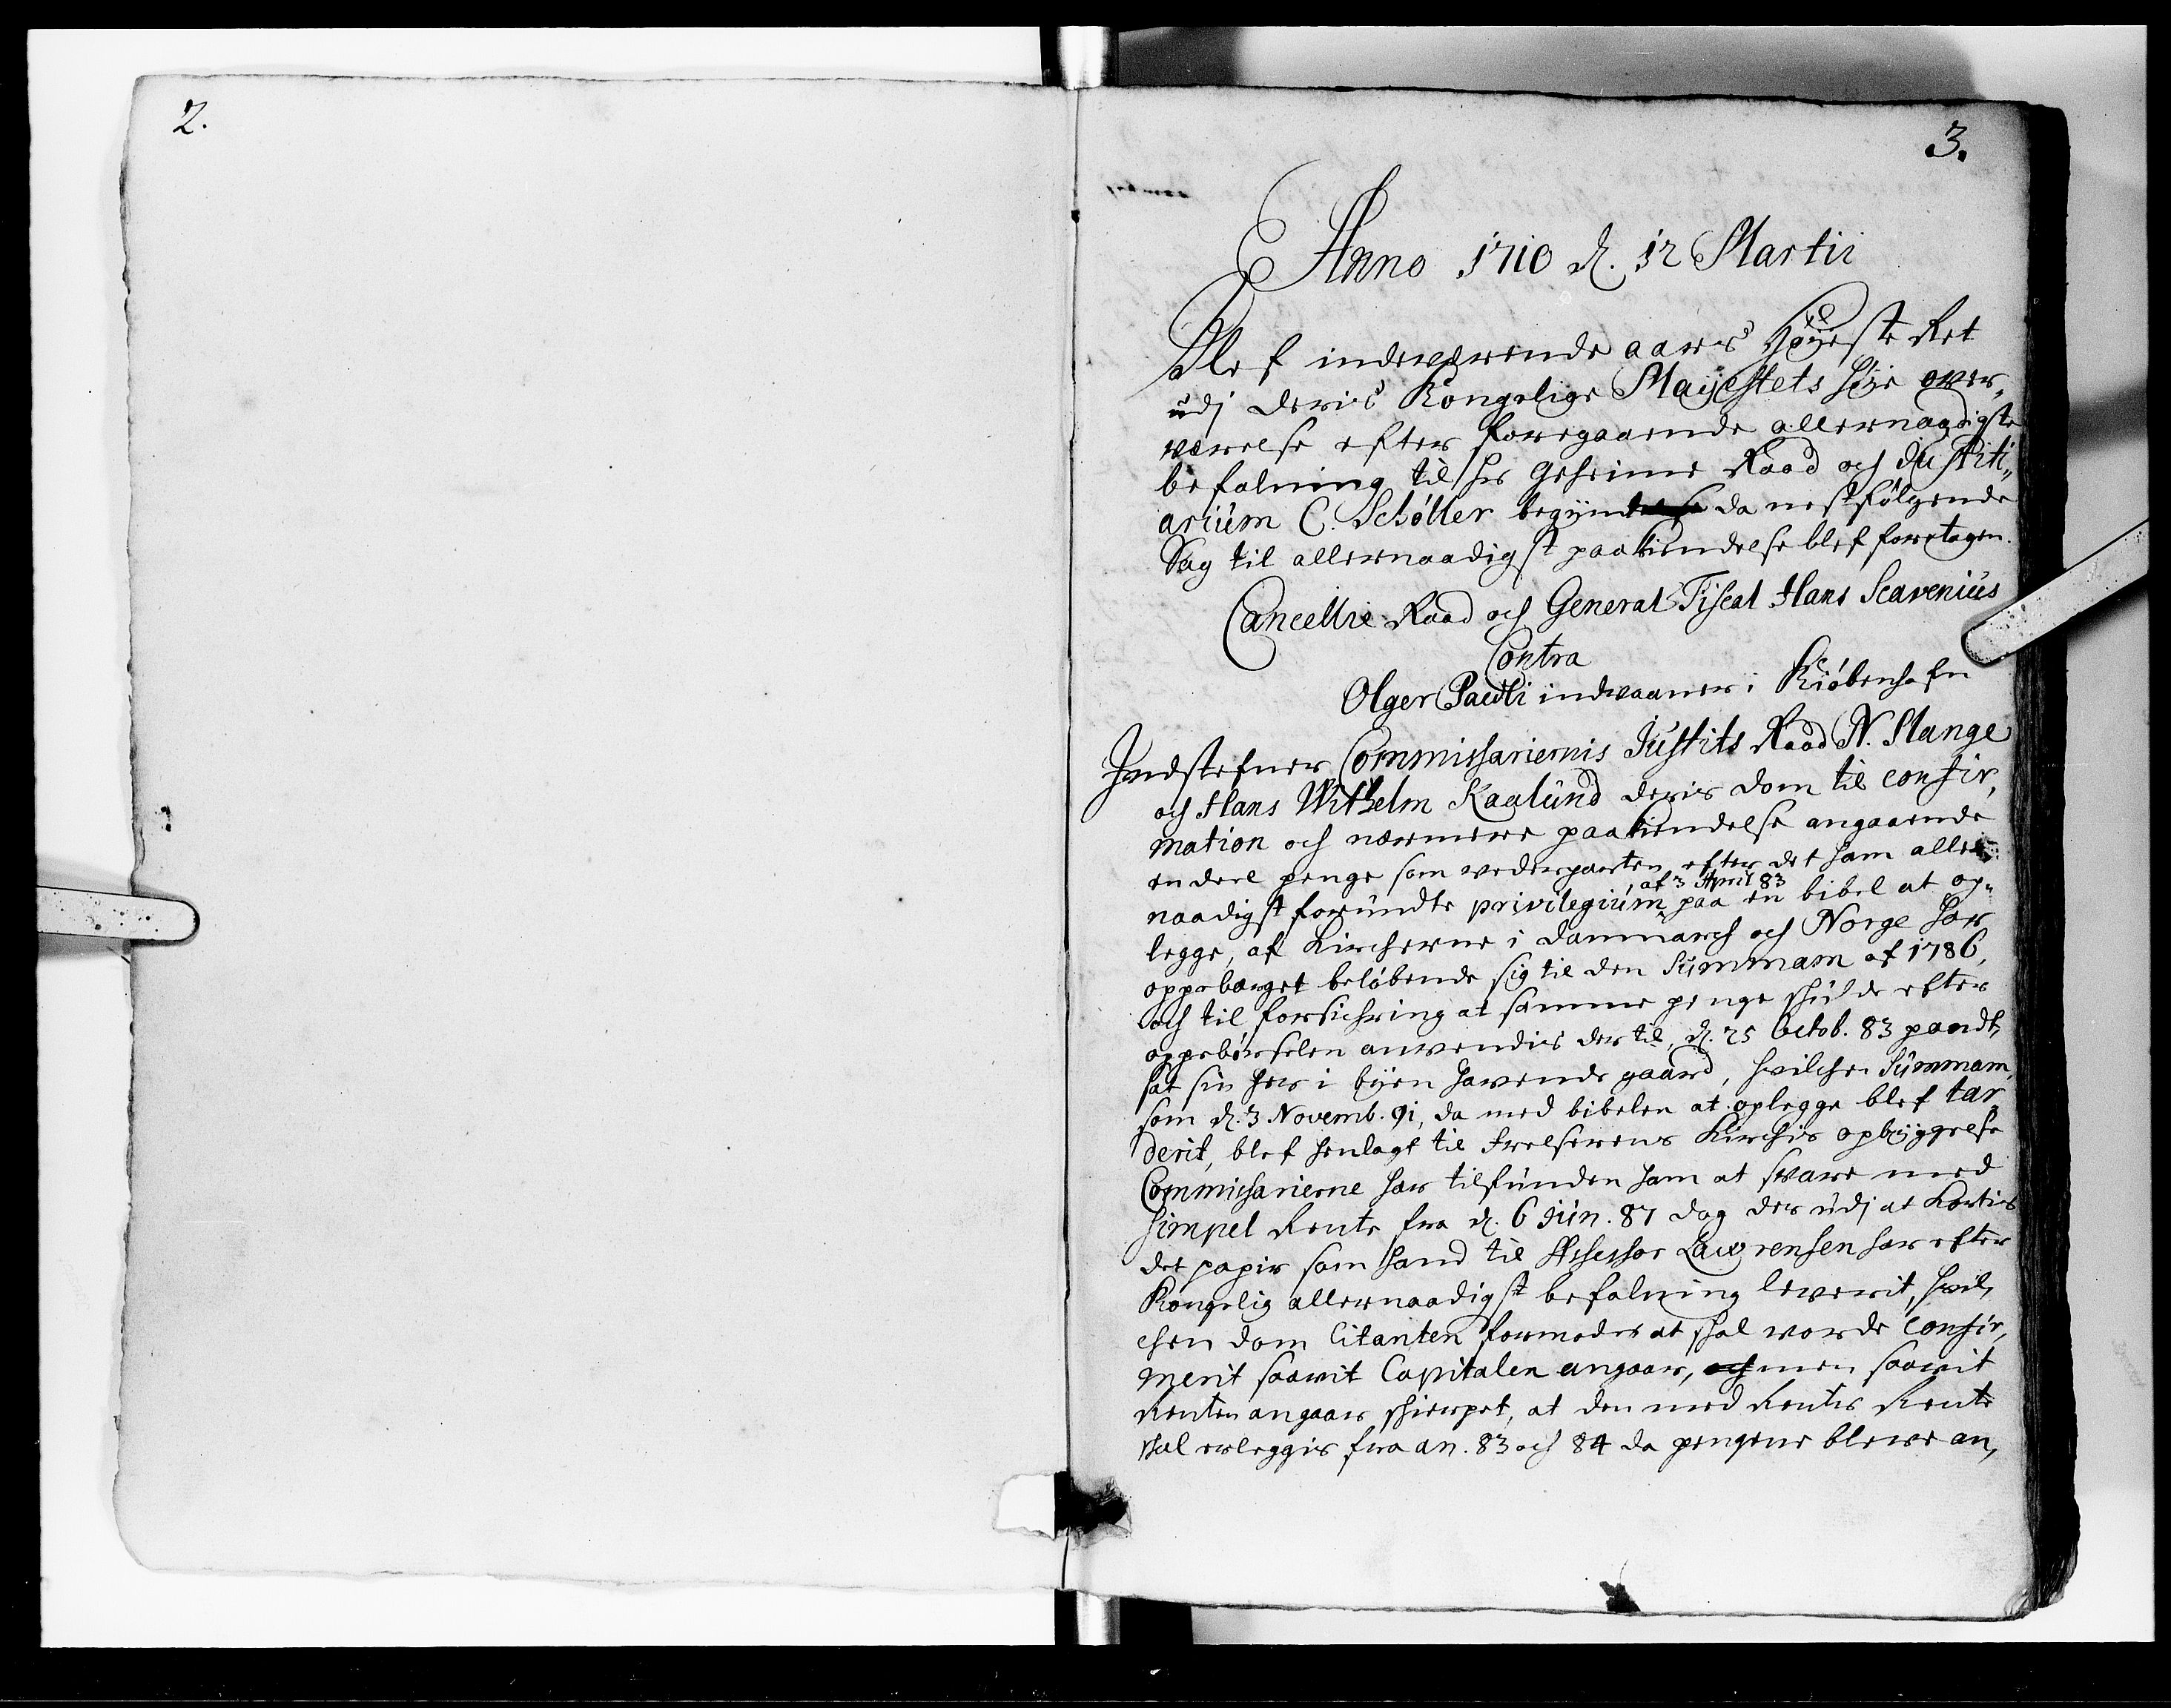 2.
3.
Anno 1710 d. 12 Martii
Blef indeværende aars Høyeste Ret
udj Deris Kongelige Mayestets høje over„
værelse efter foregaaende allernaadigste
befalning til hr Geheime Raad och Justiti„
arium C. Schøller begyndt da nestfølgende
Sag til allernaadigst paakiendelse blef foretagen.
Cancellie Raad och General Fiscal Hans Scavenius
Contra
Olger Paulli indvaaner i Kiøbenhafn
Indstefner Commissariernis Justits Raad N. Slange
och Hans Wilhelm Kaalund deris dom til confir„
mation och nærmere paakiendelse angaaende
en deel penge som vederparten efter det ham aller
naadigst forundte privilegium paa en bibel at op„
af 3 April 83
legge, af Kircherne i Danmarch och Norge har
oppebaaret beløbende sig til den Summam af 1786,
och til forsichring at samme penge skulde efter
oppebørselen anvendis der til, d. 25 Octob. 83 pandt„
sat sin her i byen havende gaard, hvilchen Summam,
som d. 3 Novemb. 91, da med bibelen at oplegge blef tar„
derit, blef henlagt til Frelserens Kirchis opbyggelse
Commissarierne har tilfunden ham at svare med
simpel Rente fra d. 6 Jun. 87 dog der udj at Kortis
det papir som hand til Assessor Lawrensen har efter
Kongelig allernaadigst befalning leverit, hvil„
chen dom Citanten formoder at skal vorde confir„
merit saavit Capitalen angaar, men saavit
Renten angaar skierpet, at den med Rentis Rente
skal erleggis fra an. 83 och 84 da pengene bleve an„